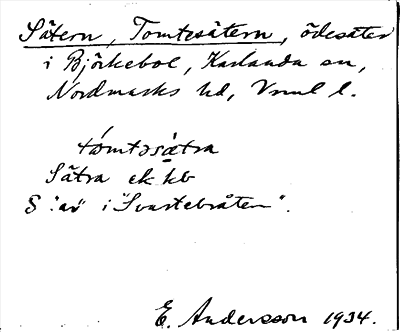 Sätern, Tomtesätern, ödesäter
i Björkebol, Karlanda sn,
Nordmarks hd, Vrml l.
tómtəsä̀tra
Sätra ek kb
S "av" i "Svartebråten".
E. Andersson 1934.